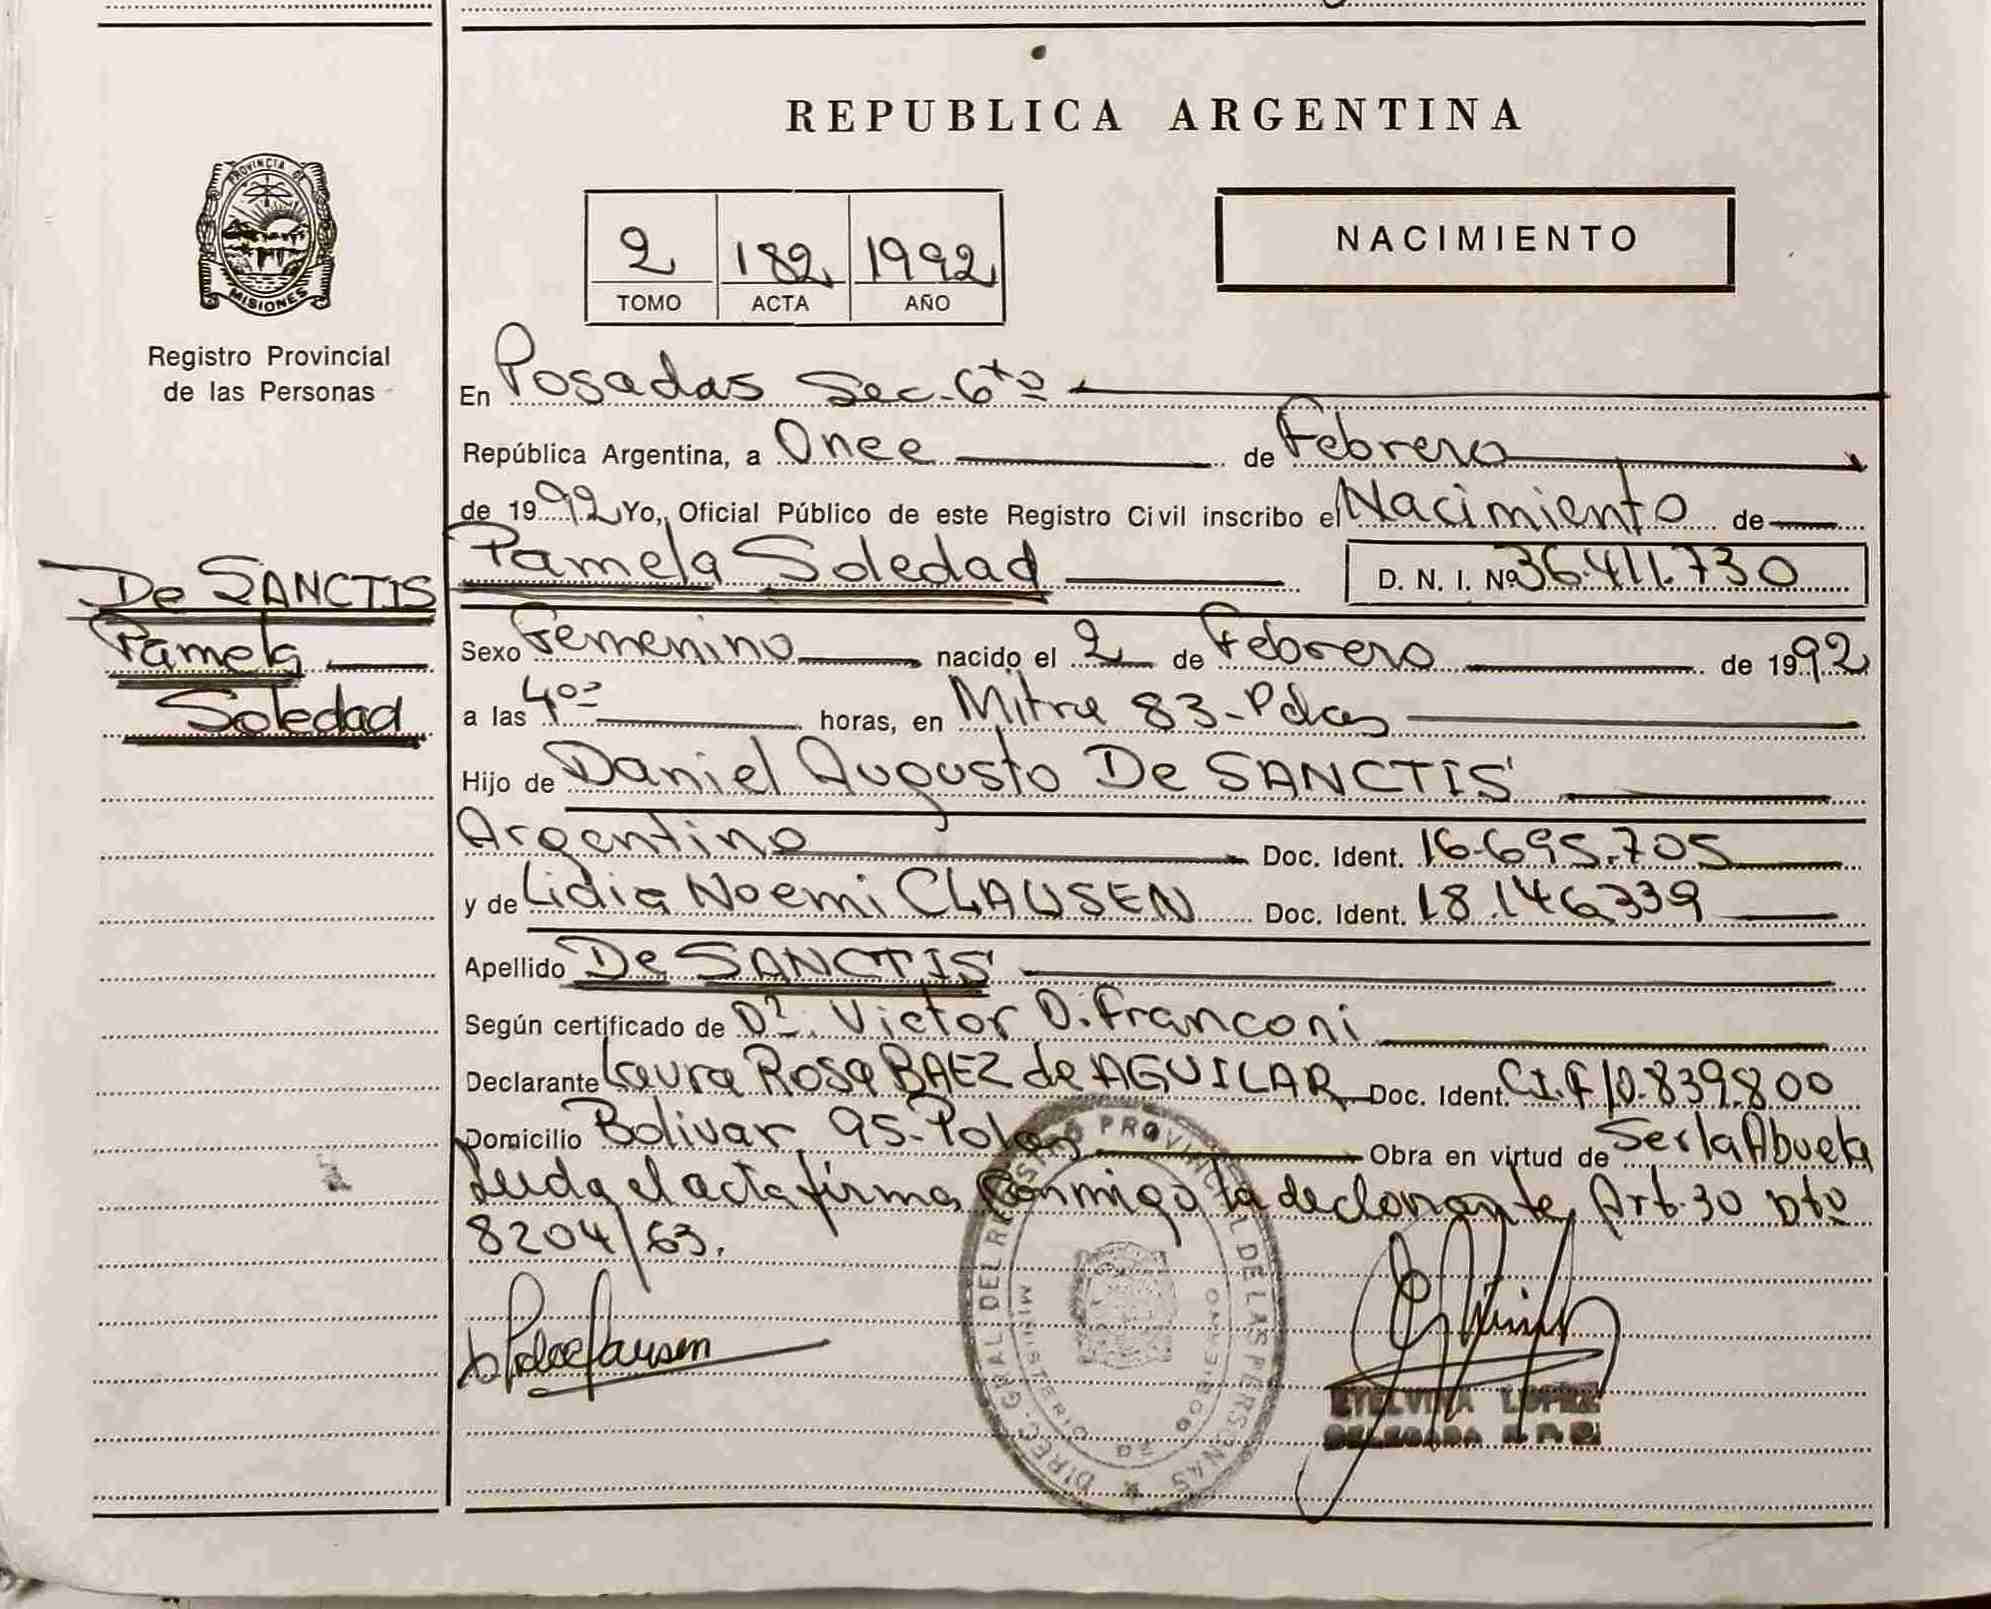 REPUBLICA ARGENTINA
PROVINCIA DE
MISIONES
Registro Provincial
de las Personas
2 182 1992
TOMO ACTA AÑO
NACIMIENTO
En Posadas Sec. 6ta
República Argentina, a Once de Febrero
de 1992 Yo, Oficial Público de este Registro Civil inscribo el Nacimiento de
Pamela Soledad D. N. I. Nº 36.411.730
De SANCTIS
Pamela
Soledad
Sexo Femenino nacido el 2 de Febrero de 1992
a las 4oo horas, en Mitre 83-Pdas
Hijo de Daniel Augusto De SANCTIS
Argentino Doc. Ident. 16.695.705
y de Lidia Noemi CLAUSEN Doc. Ident. 18.146.339
Apellido De SANCTIS
Según certificado de Dr. Victor D. Franconi
Declarante Laura Rosa BAEZ de AGUILAR Doc. Ident. C.I.F 10.839.800
Domicilio Bolivar 95-Pdas Obra en virtud de Ser la Abuela
Leida el acta firma conmigo la declarante Art. 30 Dto
8204/63.
DIREC. GRAL DEL REGISTRO PROVINCIAL DE LAS PERSONAS
MINISTERIO DE GOBIERNO
ETELVINA LOPEZ
DELEGADA R.P.P.